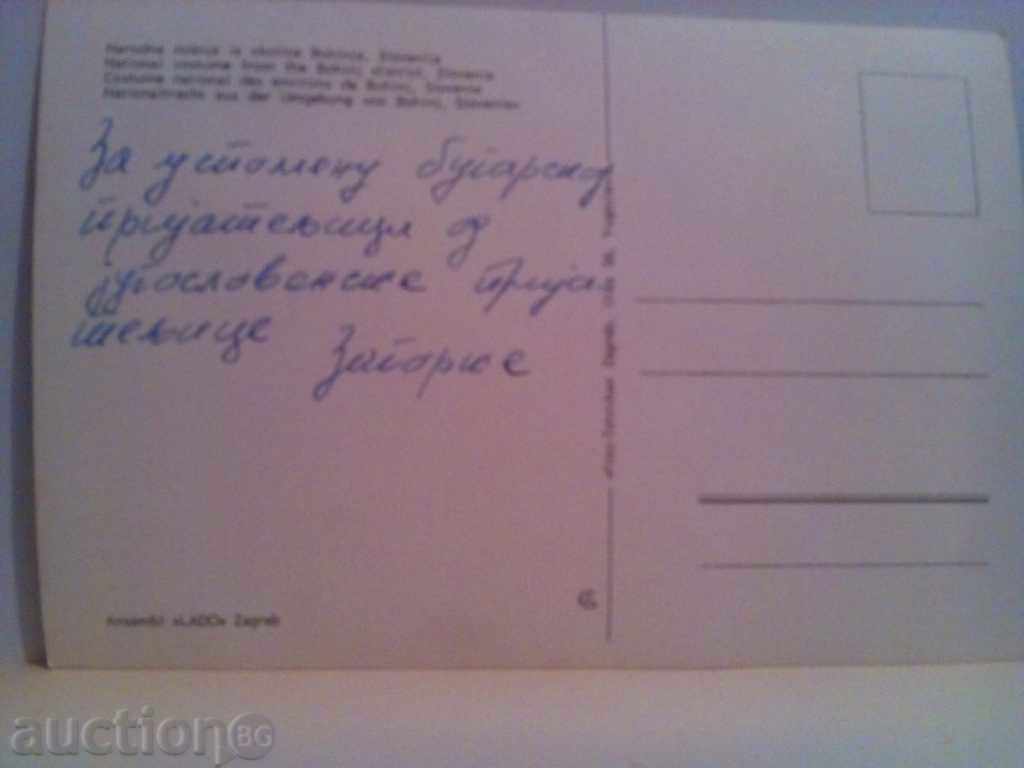 Narodna nošnja iz okolice Bohinja, Slovenia
National costume from the Bohinj district, Slovenia
Costume national des environs de Bohinj, Slovenie
Nationaltracht aus der Umgebung von Bohinj, Slovenien
За успомену бугарској
пријатељици од
југословенске прија
тељице
Загорке
Zagreb
Ansambl »LADO« Zagreb
auctionBG